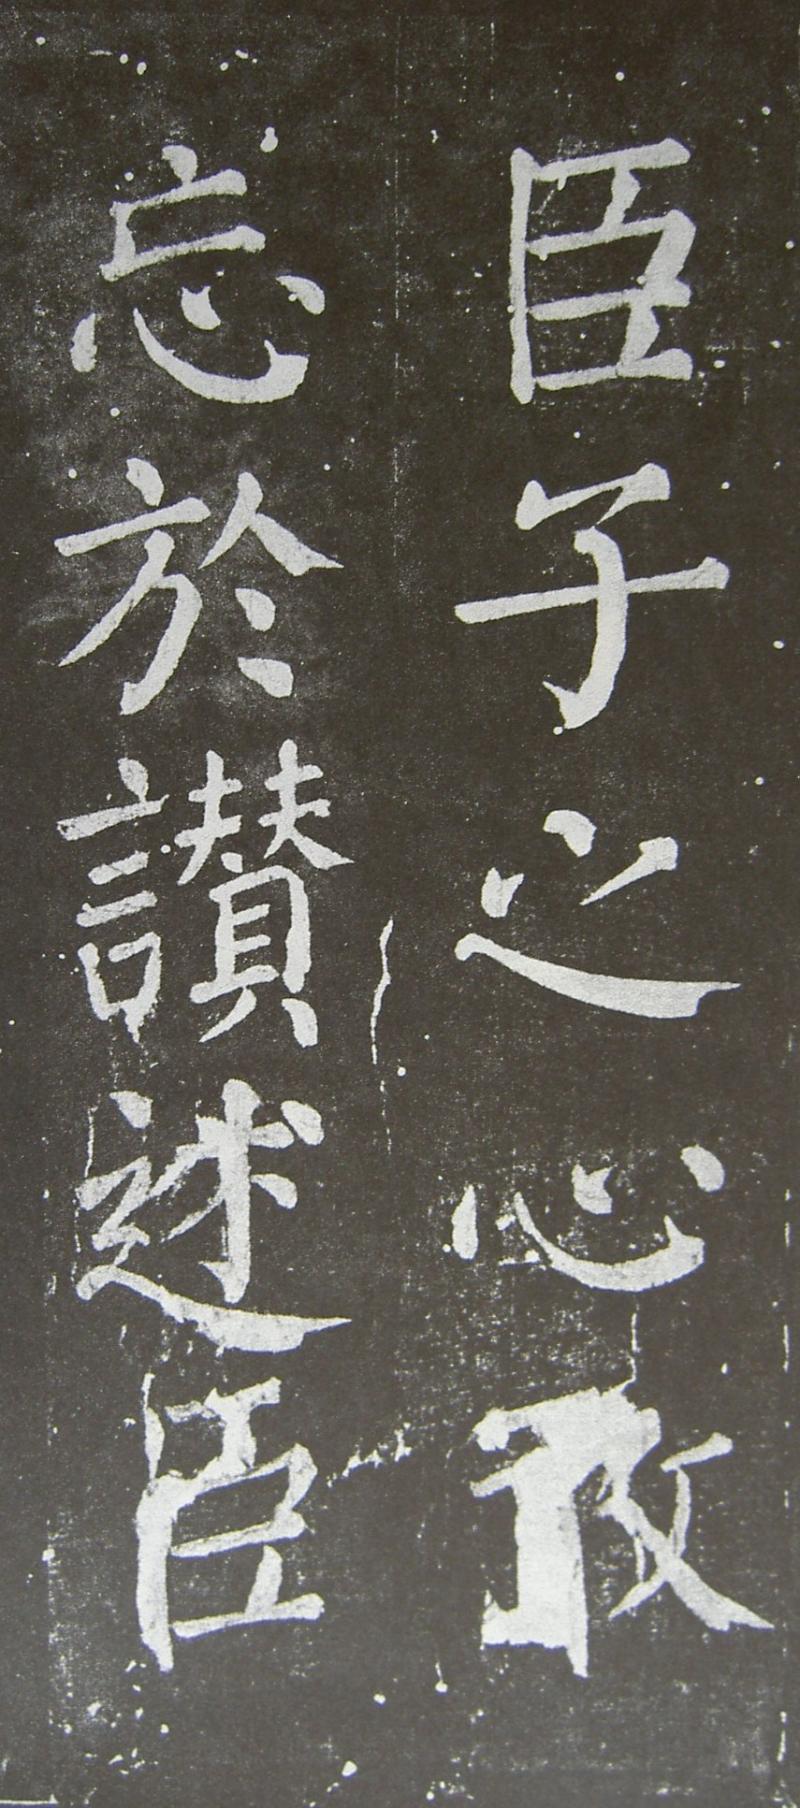 臣子之心敢
忘於讃述臣